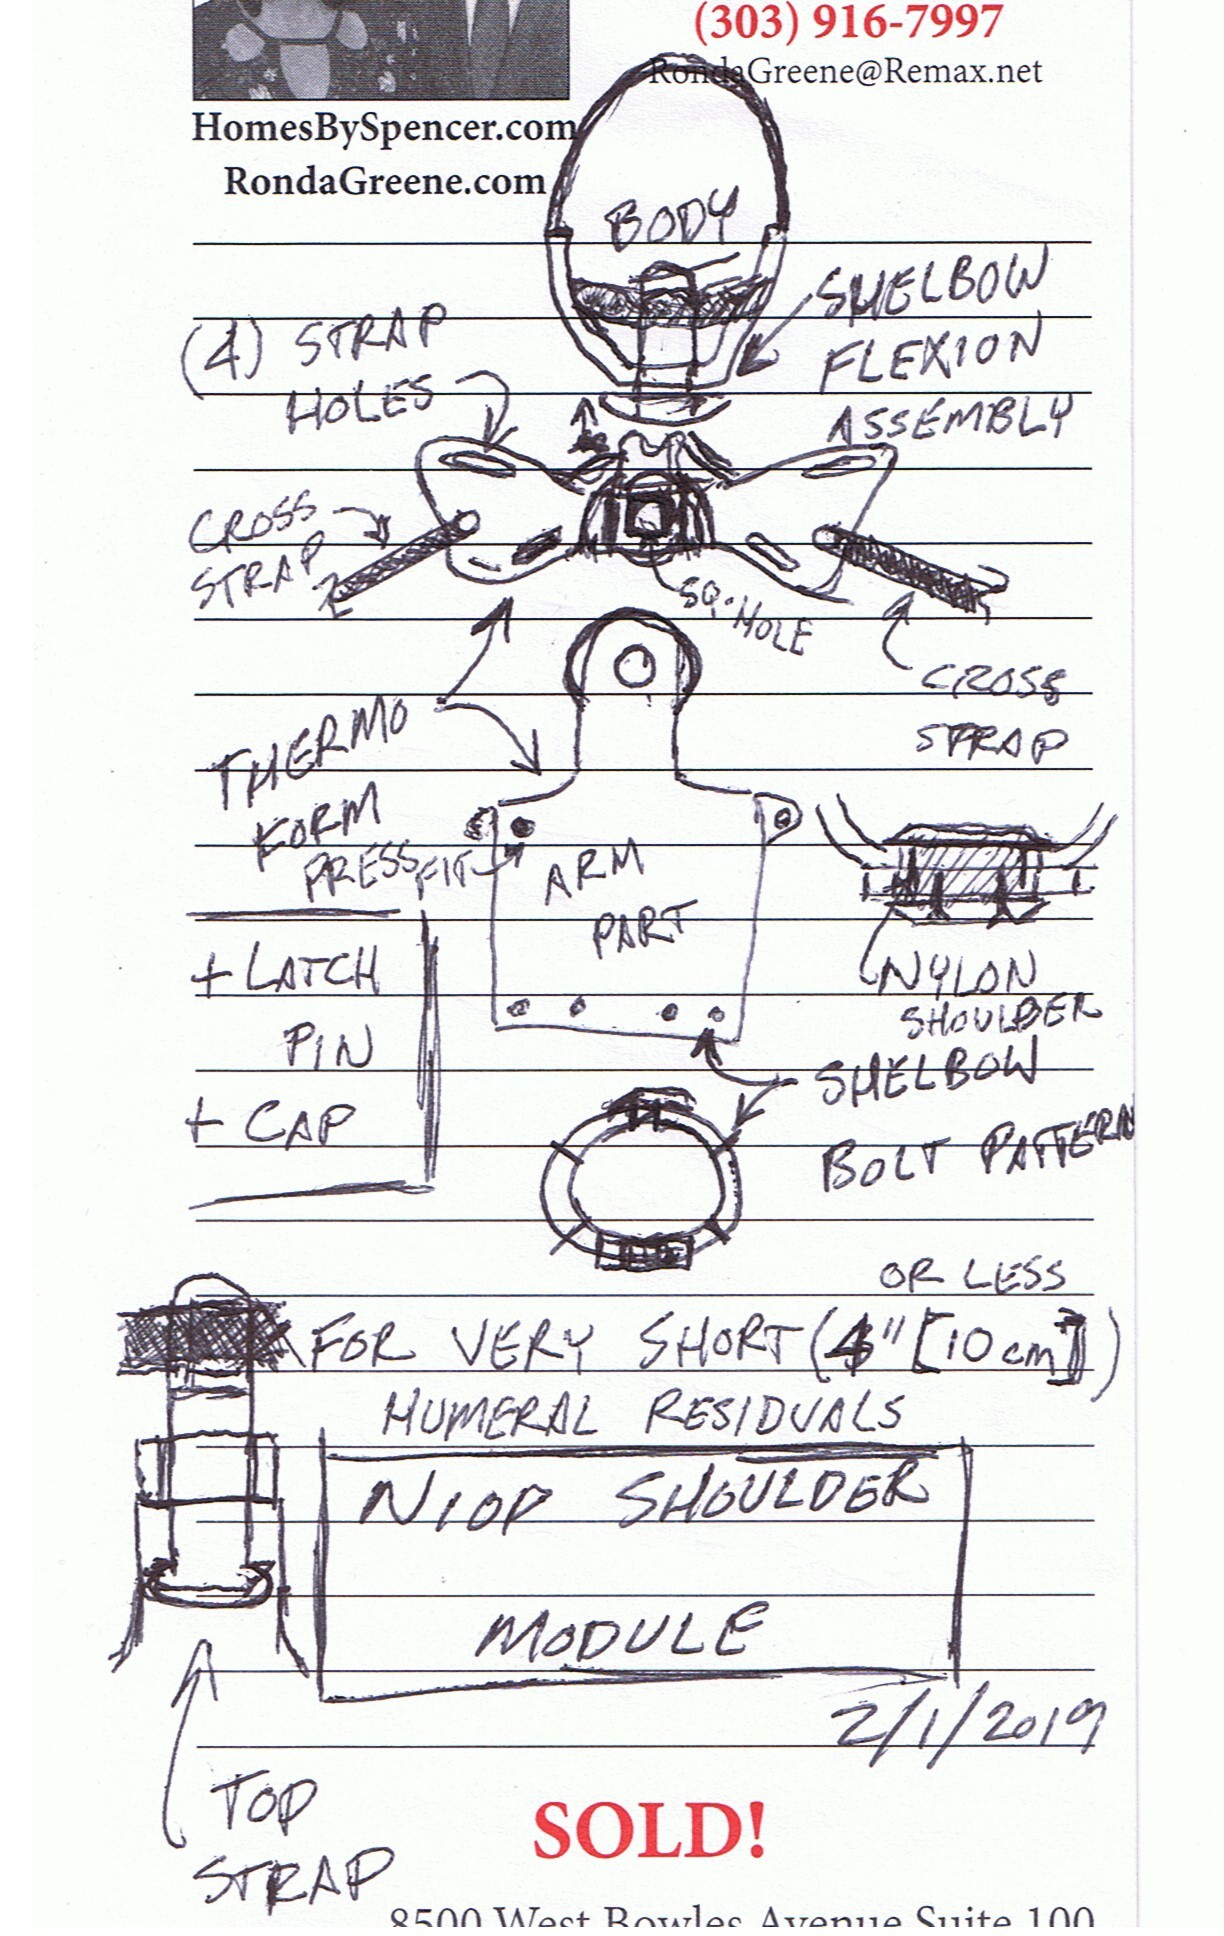 (303) 916-7997
RondaGreene@Remax.net
HomesBySpencer.com
RondaGreene.com
BODY
SHELBOW
FLEXION
ASSEMBLY
(4) STRAP
HOLES
CROSS
STRAP
SQ. HOLE
CROSS
STRAP
THERMO
FORM
PRESS FIT
ARM
PART
+ LATCH
PIN
+ CAP
NYLON
SHOULDER
SHELBOW
BOLT PATTERN
OR LESS
FOR VERY SHORT (4" [10 cm])
HUMERAL RESIDUALS
NIOP SHOULDER
MODULE
2/1/2019
TOP
STRAP
SOLD!
8500 West Bowles Avenue Suite 100